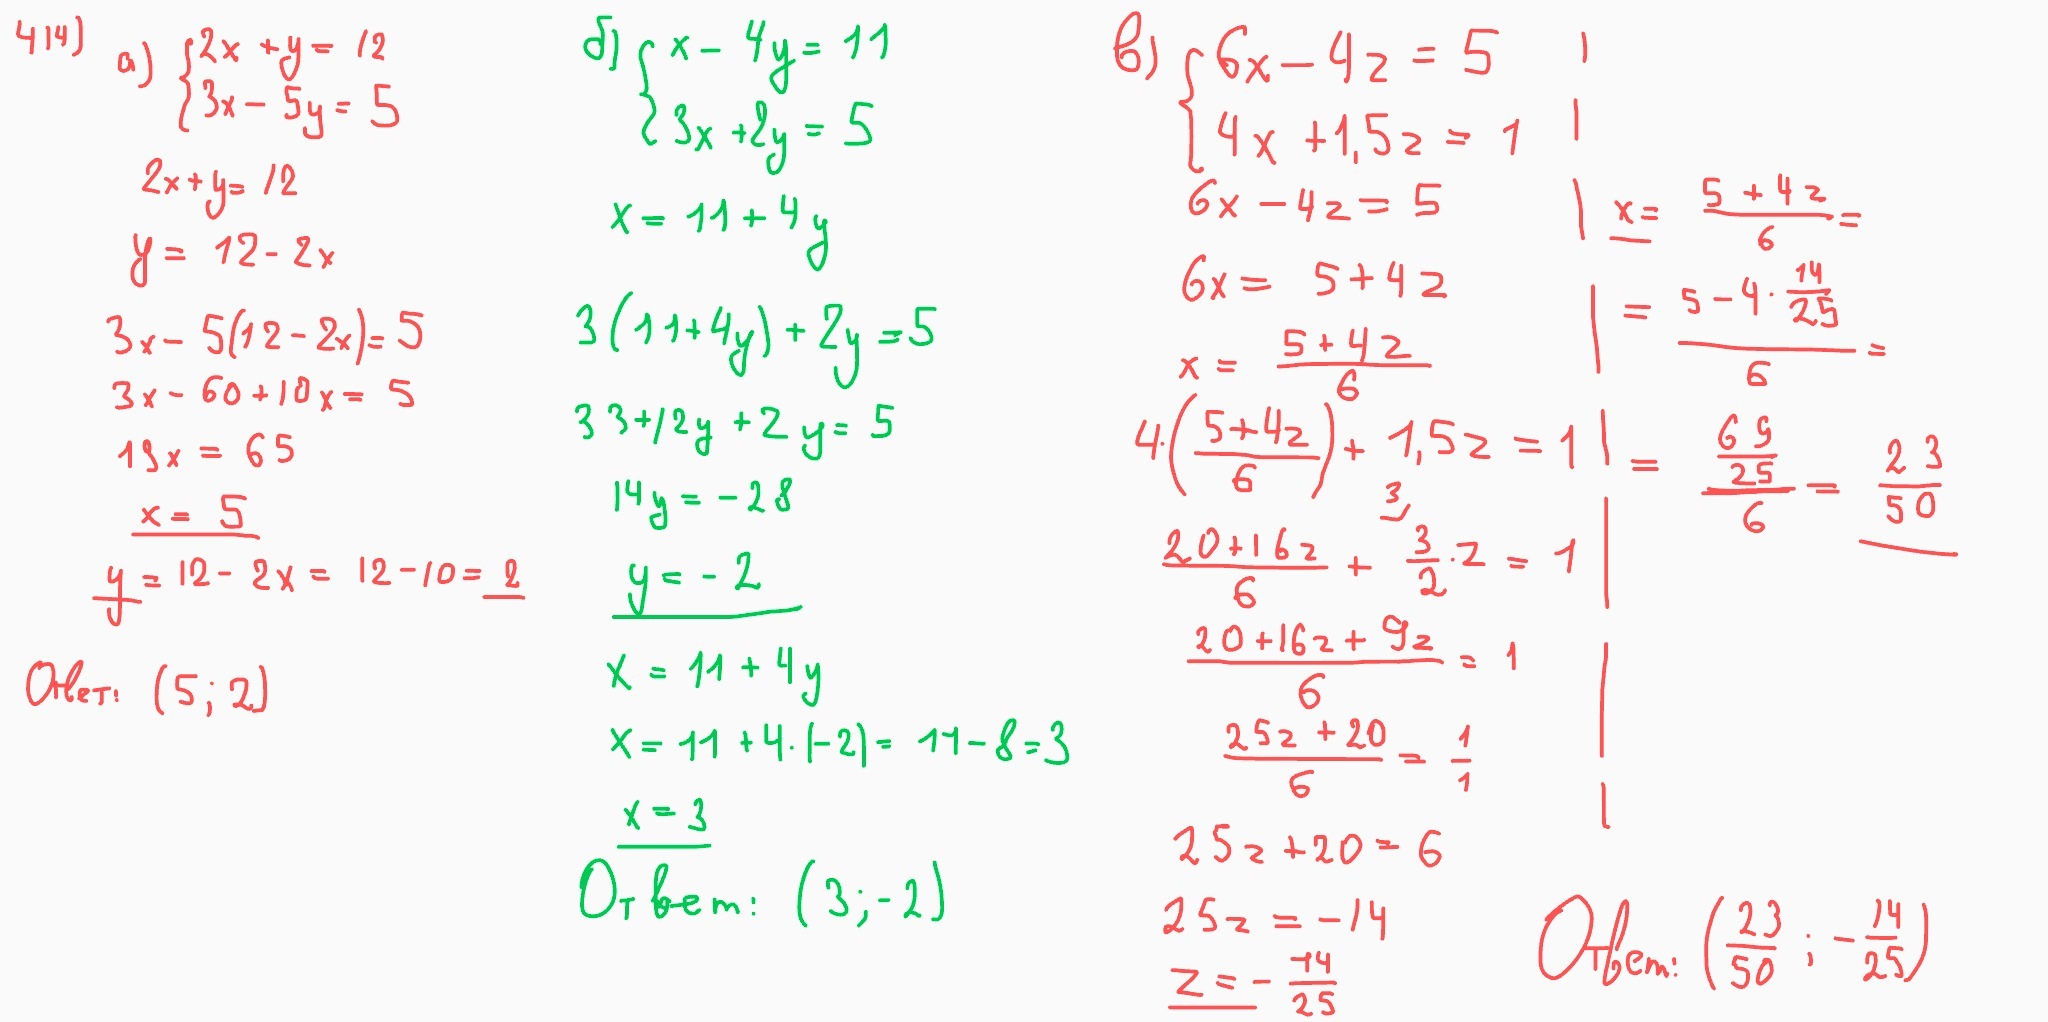 414)
а) { 2x + y = 12
3x - 5y = 5
2x + y = 12
y = 12 - 2x
3x - 5(12 - 2x) = 5
3x - 60 + 10x = 5
13x = 65
x = 5
y = 12 - 2x = 12 - 10 = 2
Ответ: (5; 2)
б) { x - 4y = 11
3x + 2y = 5
x = 11 + 4y
3(11 + 4y) + 2y = 5
33 + 12y + 2y = 5
14y = -28
y = -2
x = 11 + 4y
x = 11 + 4·(-2) = 11 - 8 = 3
x = 3
Ответ: (3; -2)
в) { 6x - 4z = 5
4x + 1,5z = 1
6x - 4z = 5
6x = 5 + 4z
x = (5 + 4z)/6
4·((5 + 4z)/6) + 1,5z = 1
(20 + 16z)/6 + 3/2 · z = 1 (3)
(20 + 16z + 9z)/6 = 1
(25z + 20)/6 = 1/1
25z + 20 = 6
25z = -14
z = - 14/25
x = (5 + 4z)/6 =
= (5 - 4 · 14/25)/6 =
= (69/25)/6 = 23/50
Ответ: (23/50; - 14/25)